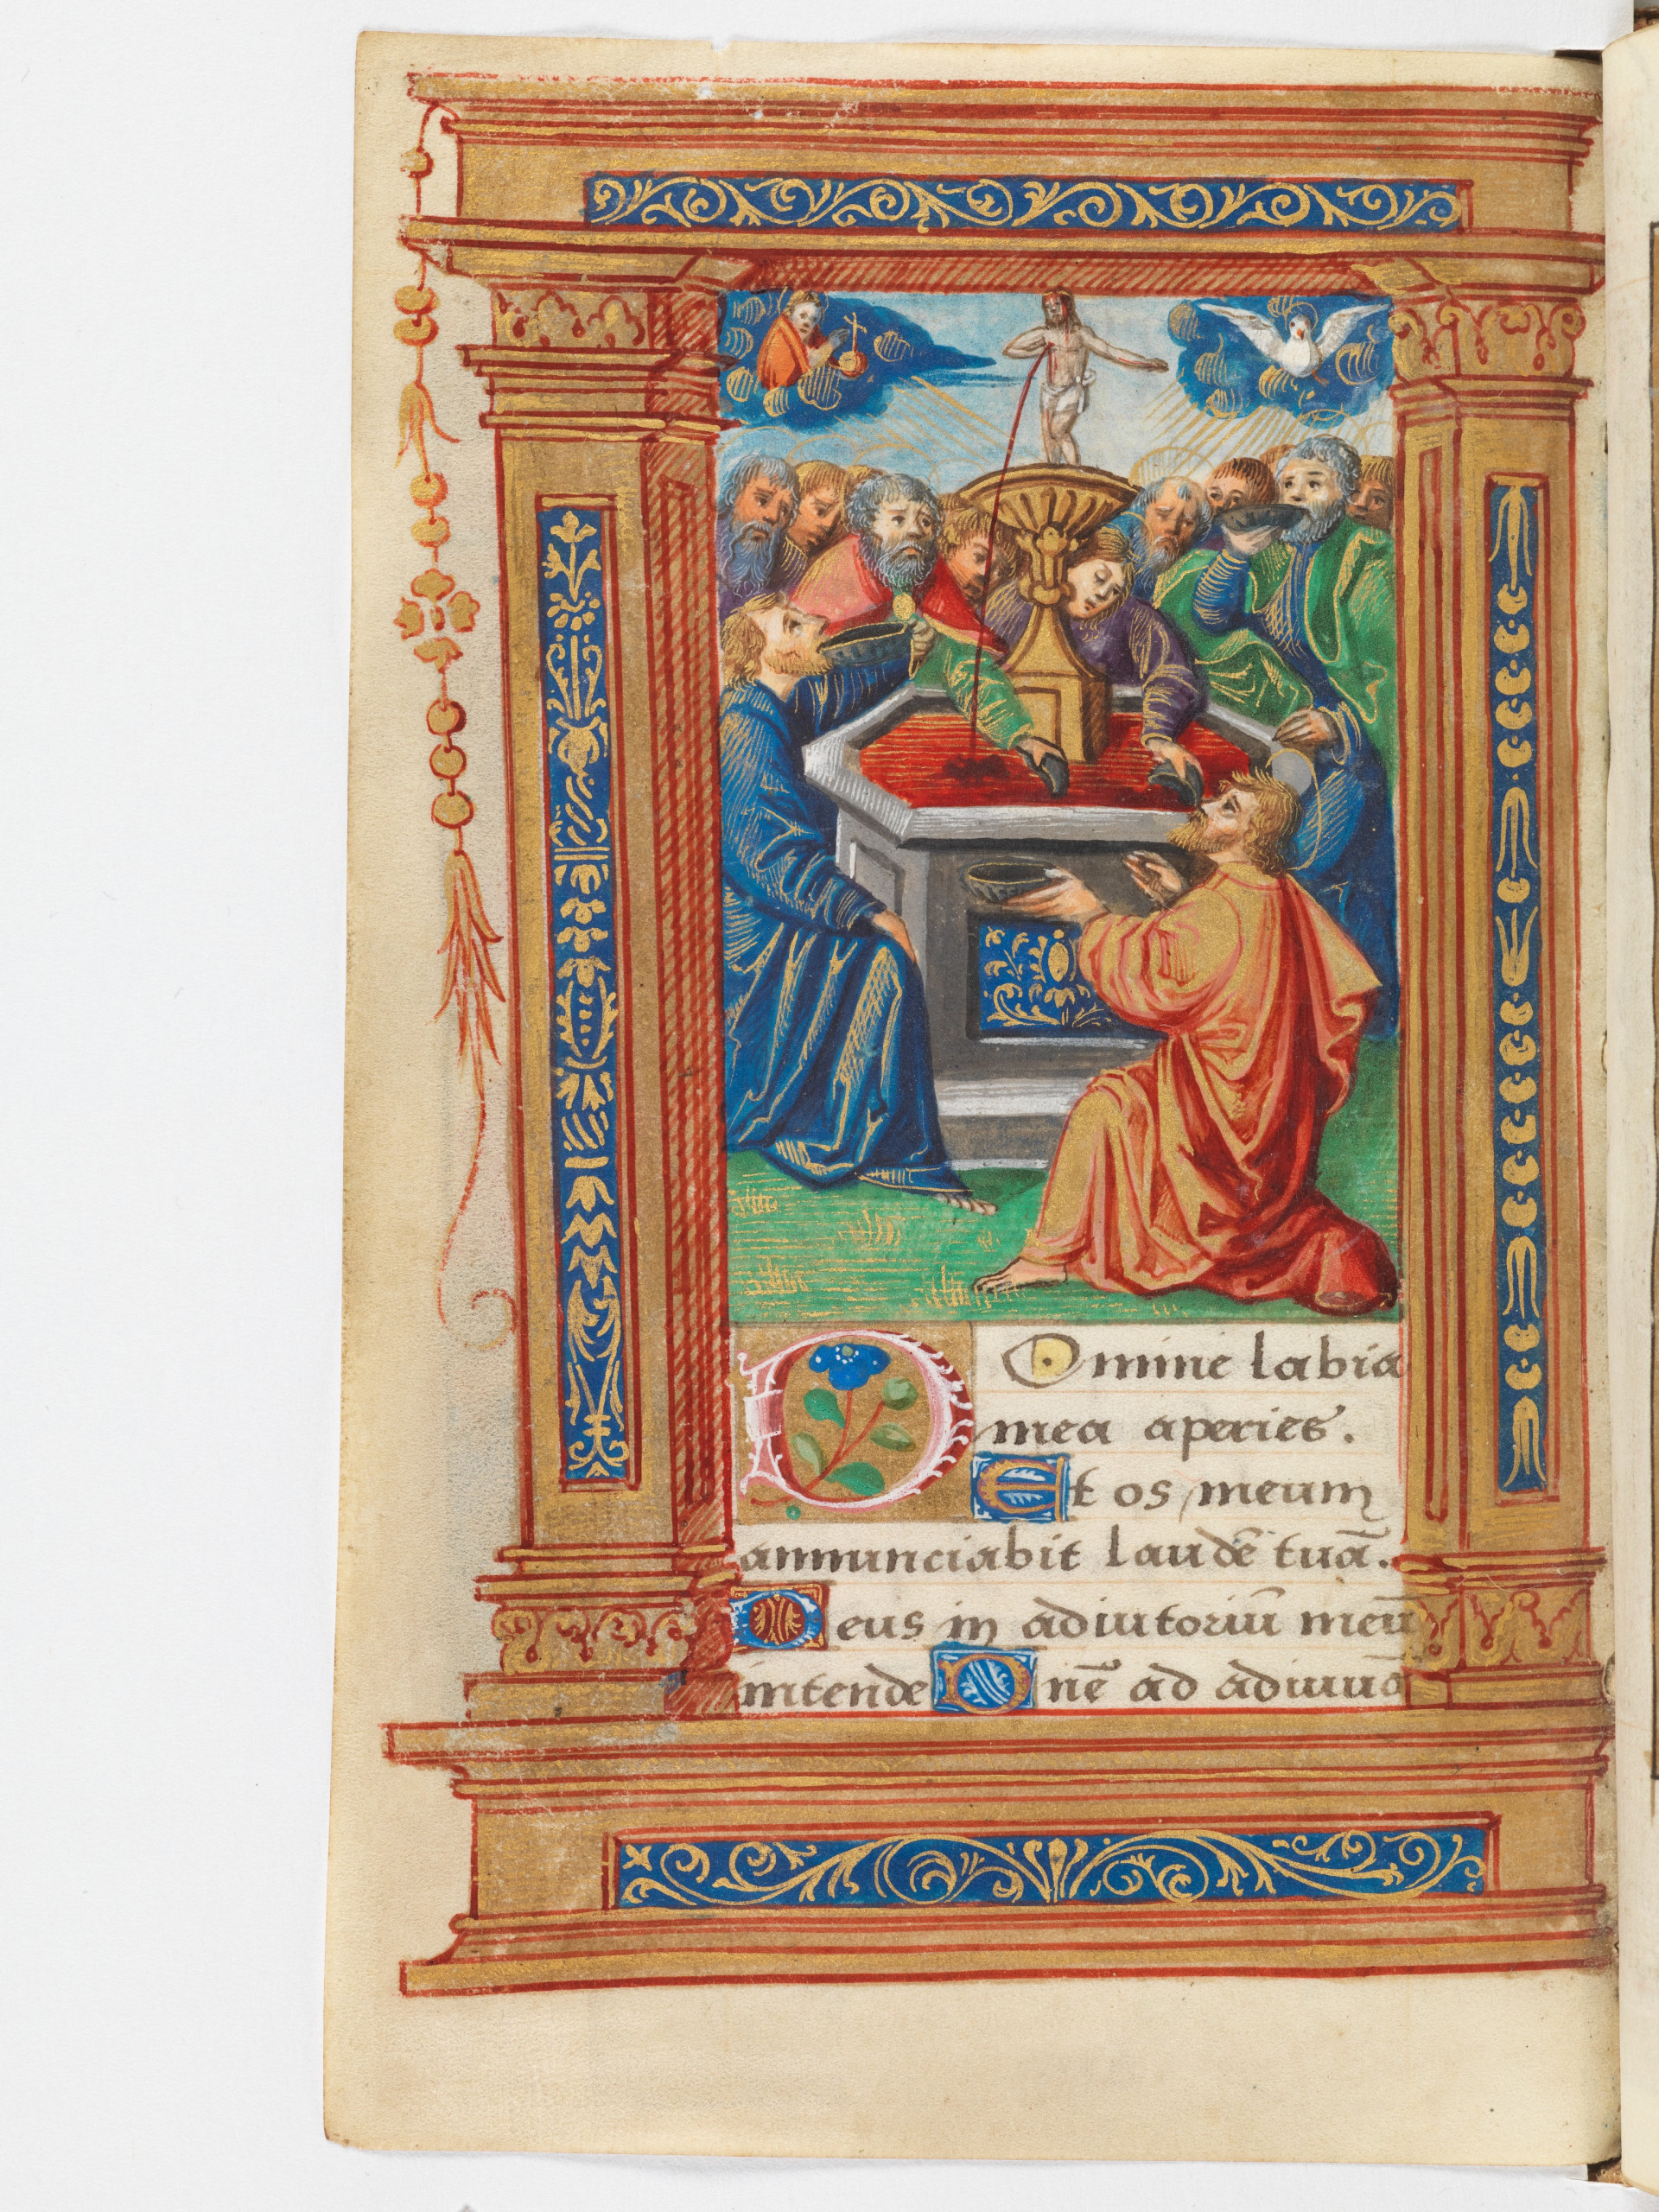 Domine labia
mea aperies.
Et os meum
annunciabit laudē tuā.
Deus in adiutoriū meū
intende Dnē ad adiuuā